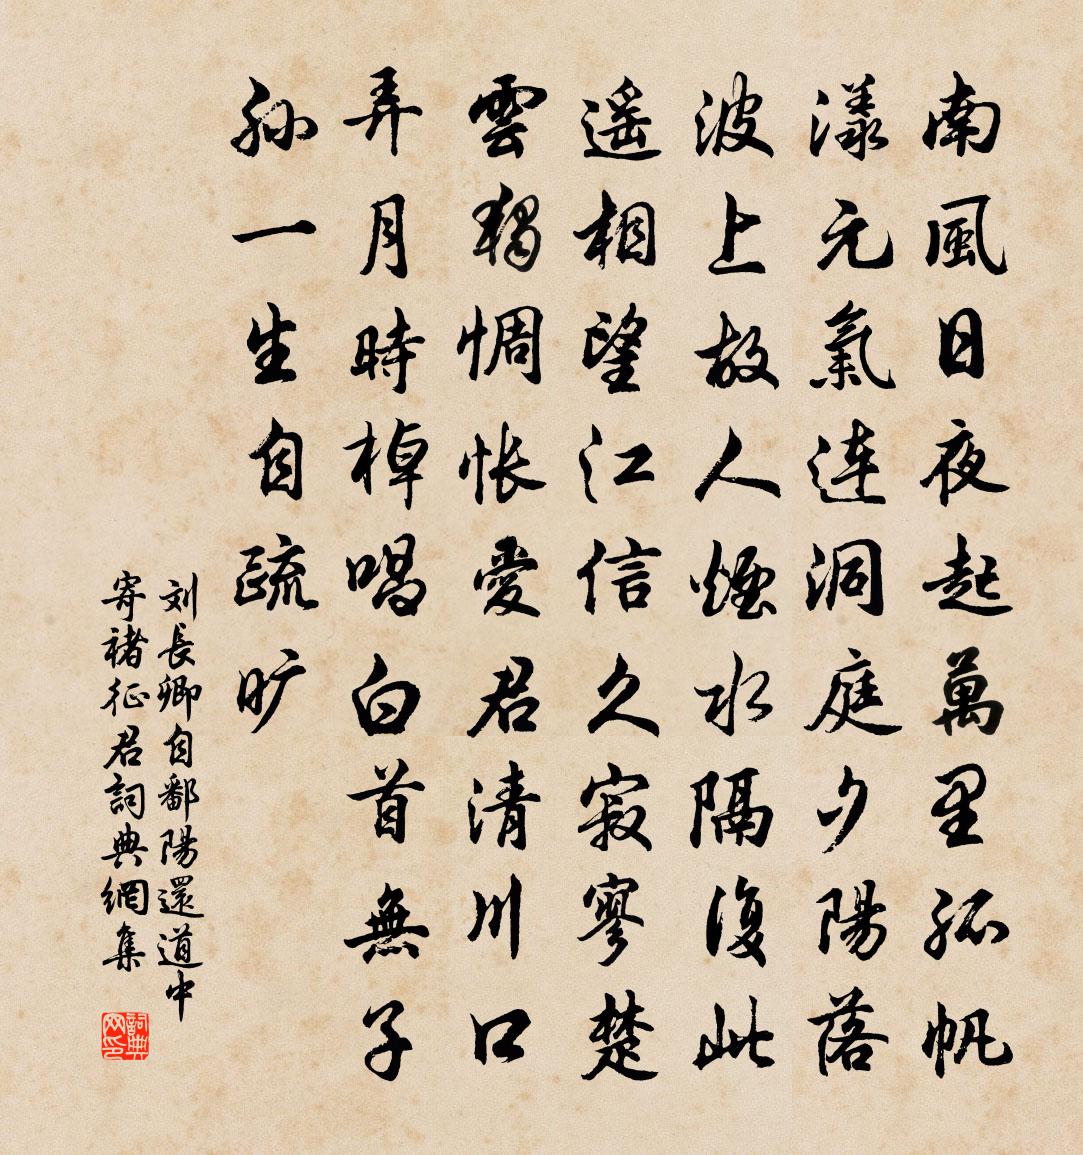 南風日夜起萬里孤帆
漾元氣連洞庭夕陽落
波上故人煙水隔復此
遥相望江信久寂寥楚
雲獨惆悵愛君清川口
弄月時棹唱白首無子
孫一生自疏旷
刘長卿自鄱陽還道中
寄褚征君詞典網集
詞典
网印